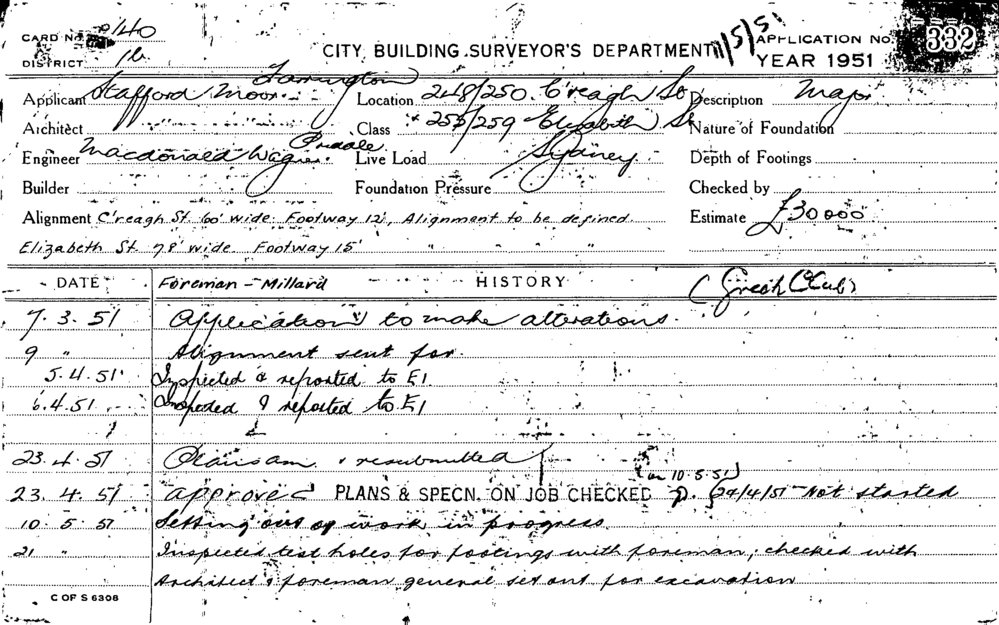 CARD No. 140
DISTRICT 1b
CITY BUILDING SURVEYOR'S DEPARTMENT
11/5/51
APPLICATION No. 332
YEAR 1951
Applicant Stafford Moor Farrington
Location 248/250 C'reagh St
Description Major
Architect
Class 255/259 Elizabeth St
Nature of Foundation
Engineer Macdonald Wagner Priddle
Live Load Sydney
Depth of Footings
Builder
Foundation Pressure
Checked by
Alignment C'reagh St. 60' wide. Footway 12', Alignment to be defined.
Estimate £30000
Elizabeth St. 78' wide. Footway 15' " " "
DATE Foreman - Millard HISTORY (Greek Club)
7. 3. 51 Application to make alterations.
9 " Alignment sent for.
5. 4. 51 Inspected & reported to E1.
6. 4. 51 Inspected & reported to E1
23. 4. 51 Plans am. & resubmitted
(on 10.5.51)
23. 4. 51 approved PLANS & SPECN. ON JOB CHECKED 24/4/51 - Not started
10. 5. 51 Setting out of work in progress.
21 " Inspected test holes for footings with foreman; checked with
Architect & foreman general set out for excavation
C OF S 6308